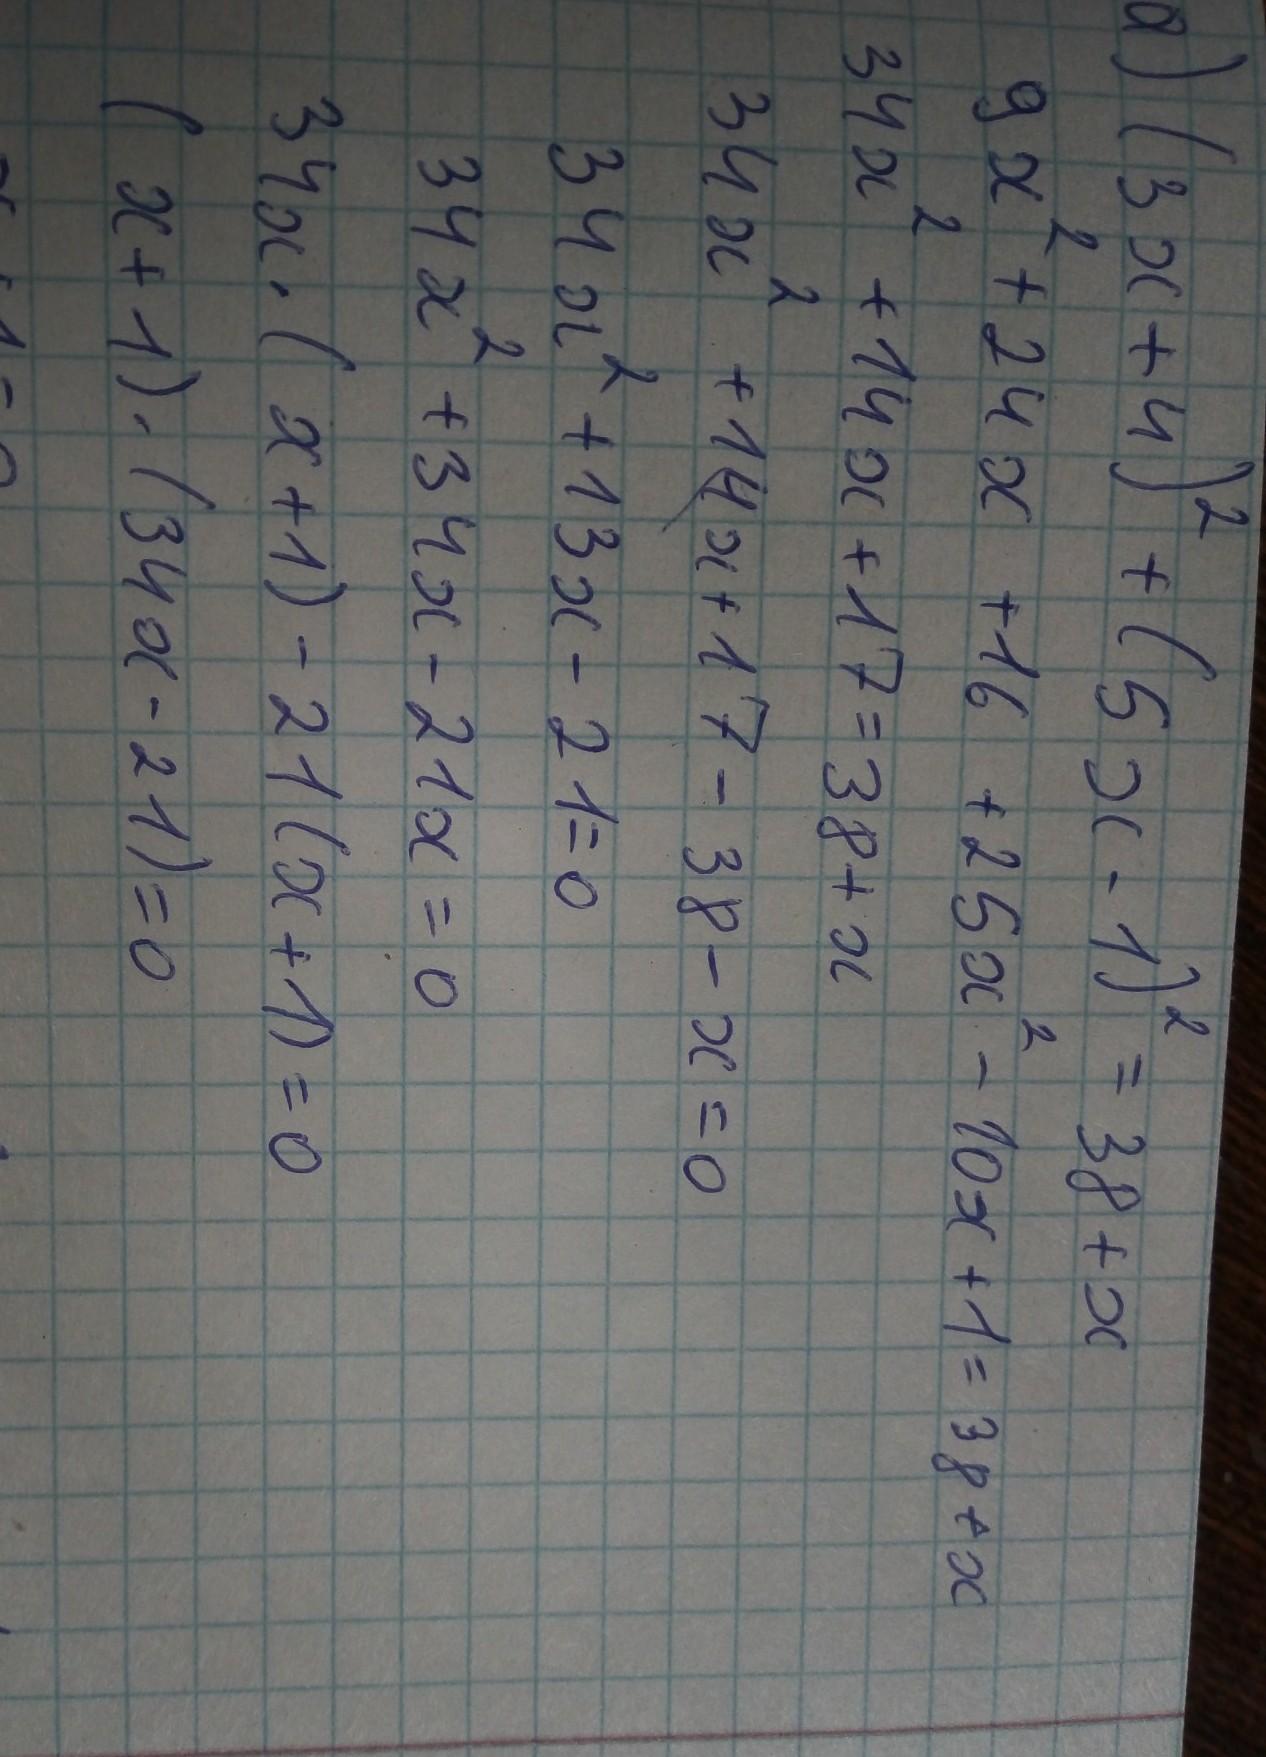 а) (3x+4)² + (5x-1)² = 38+x
9x² + 24x + 16 + 25x² - 10x + 1 = 38+x
34x² + 14x + 17 = 38+x
34x² + 14x + 17 - 38 - x = 0
34x² + 13x - 21 = 0
34x² + 34x - 21x = 0
34x · (x+1) - 21(x+1) = 0
(x+1) · (34x - 21) = 0